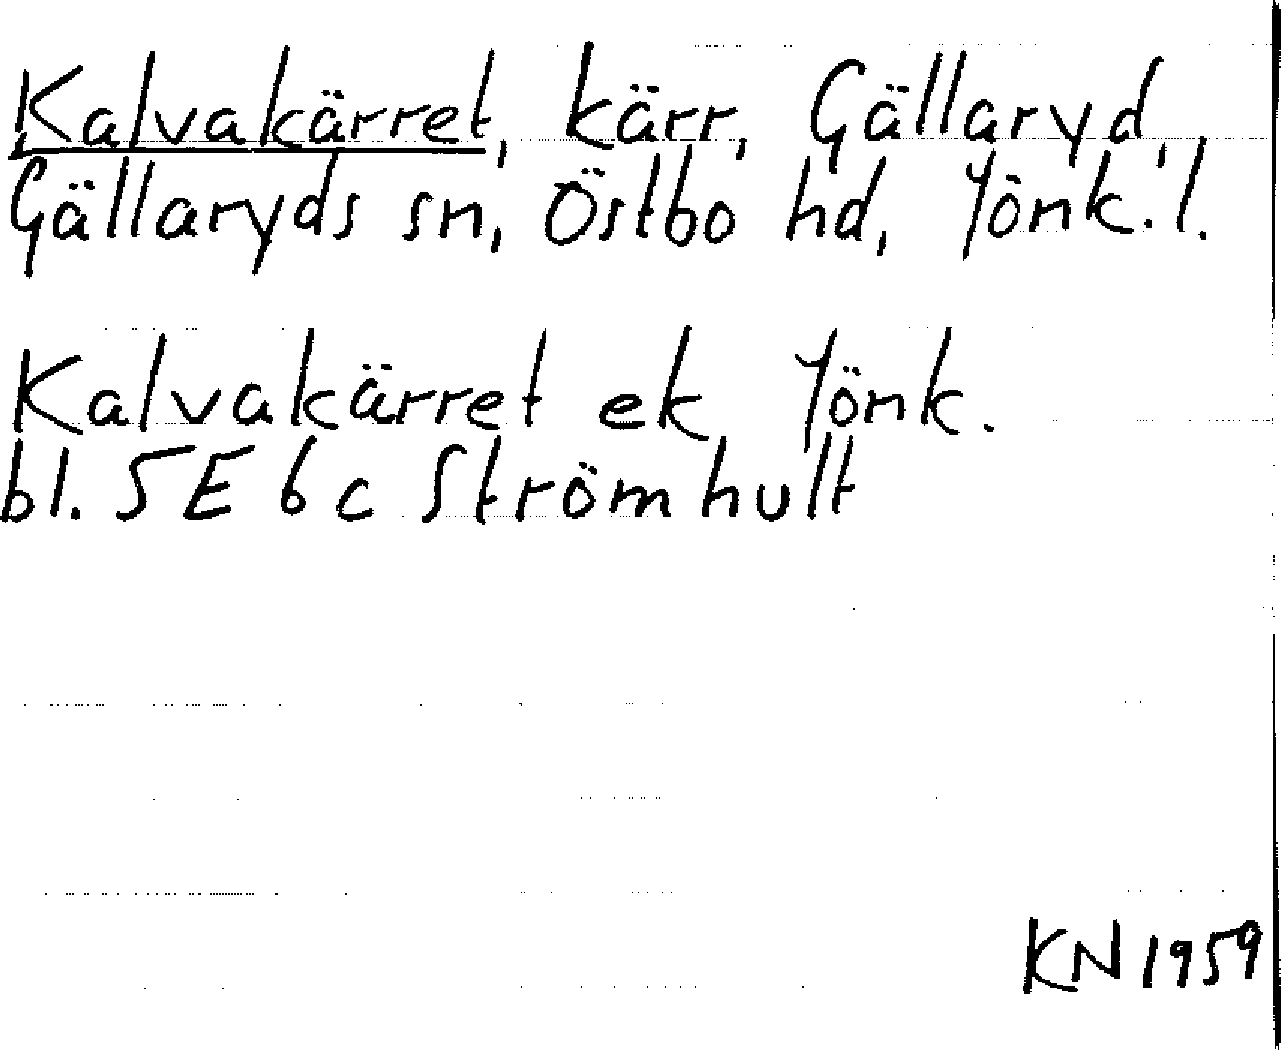 Kalvakärret, kärr, Gällaryd,
Gällaryds sn, Östbo hd, Jönk. l.
Kalvakärret ek Jönk.
bl. 5E 6c Strömhult
KN 1959